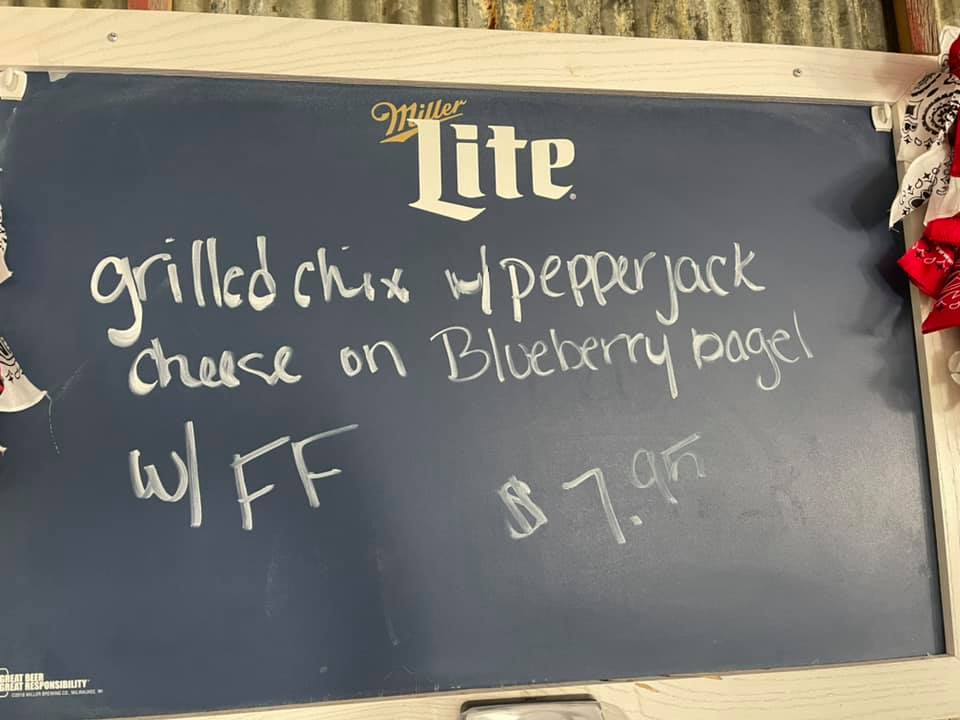 Miller
Lite
grilled chix w/ pepper jack
cheese on Blueberry bagel
w/ FF $7.95
GREAT BEER
GREAT RESPONSIBILITY
©2018 MILLER BREWING CO., MILWAUKEE, WI